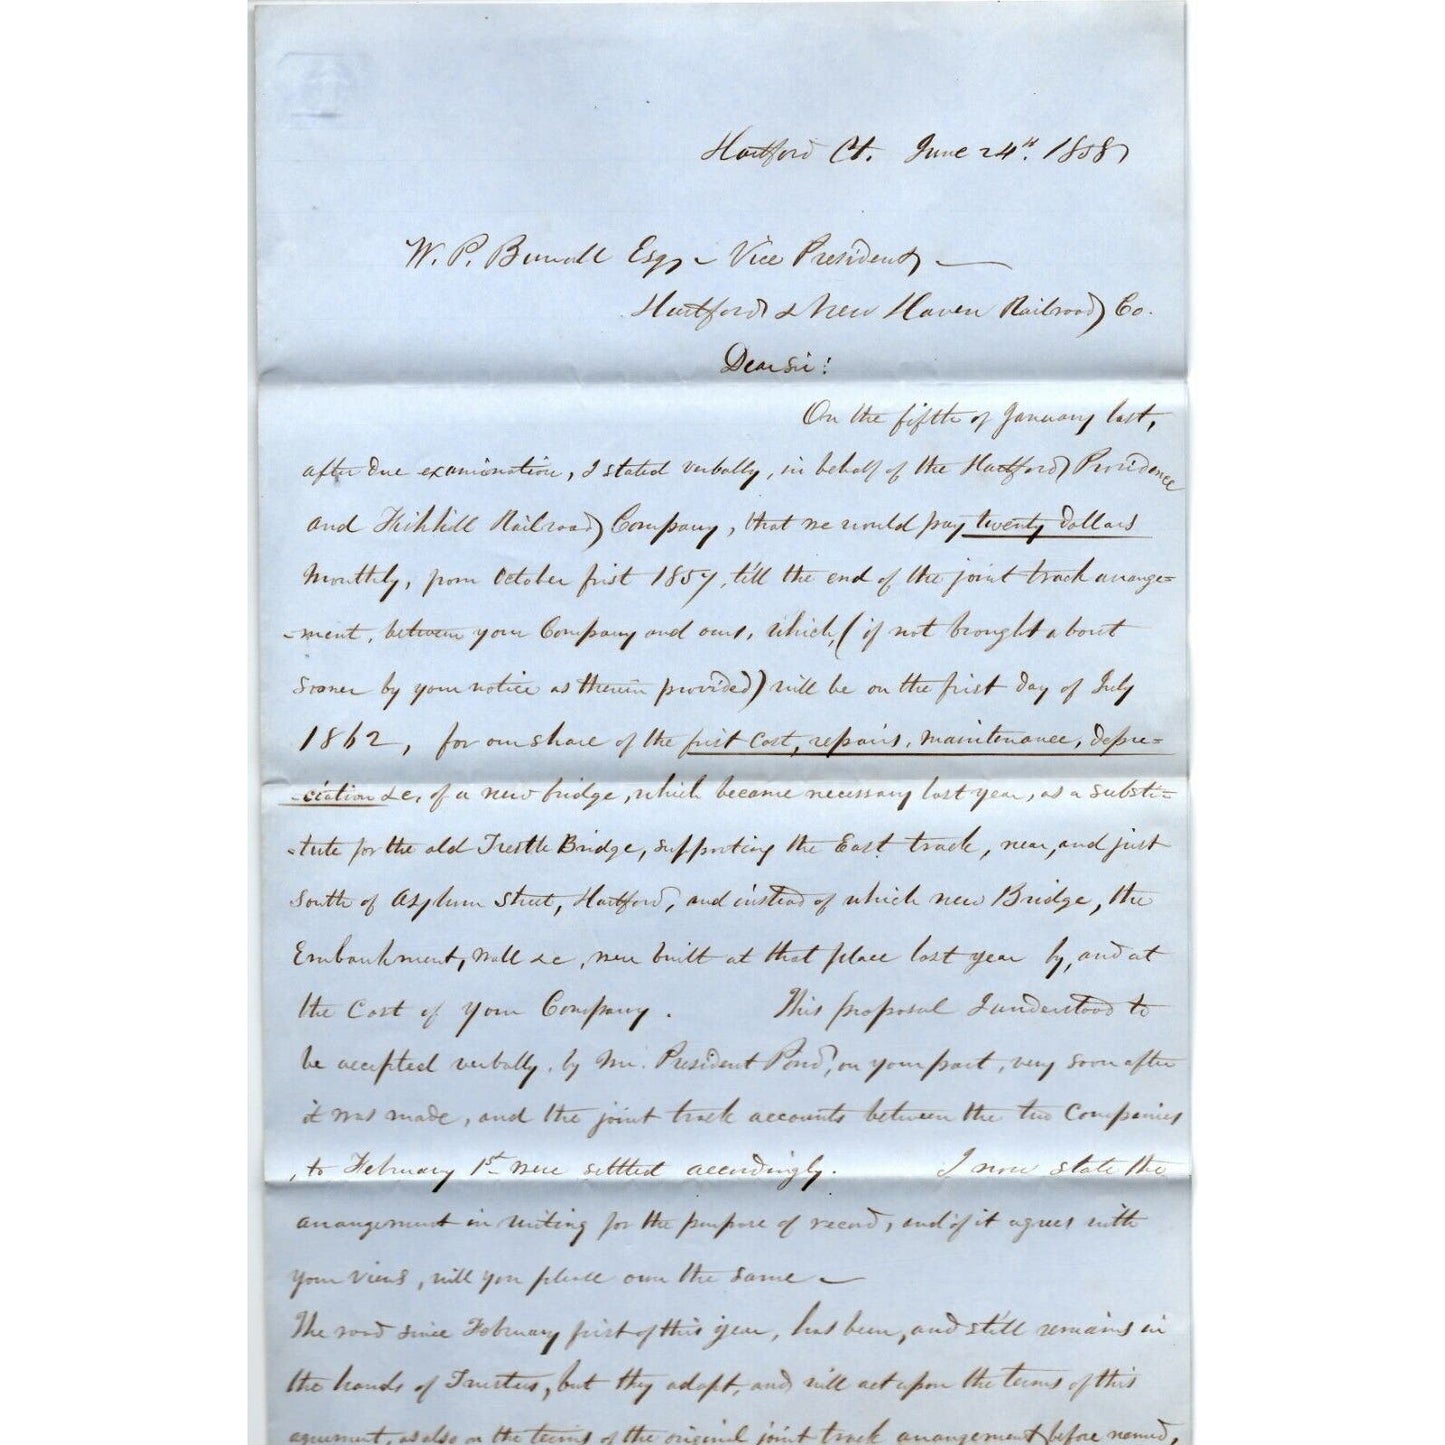 Hartford Ct. June 24th. 1858
W. P. Burrall Esq, Vice President,
Hartford & New Haven Railroad Co.
Dear Sir:
On the fifth of January last,
after due examination, I stated verbally, in behalf of the Hartford Providence
and Fishkill Railroad Company, that we would pay twenty dollars
Monthly, from October first 1857, till the end of the joint track arrange=
-ment, between your Company and ours, which, (if not brought about
sooner by your notice as therein provided) will be on the first day of July
1862, for our share of the first cost, repairs, maintenance, depre=
-ciation &c, of a new bridge, which became necessary last year, as a substi=
-tute for the old Trestle Bridge, supporting the East track, near, and just
South of Asylum Street, Hartford, and instead of which new Bridge, the
Embankment, wall &c, were built at that place last year by, and at
the Cost of your Company. This proposal I understood to
be accepted verbally, by Mr. President Pond, on your part, very soon after
it was made, and the joint track accounts between the two Companies
, to February 1st were settled accordingly. I now state the
arrangement in writing for the purpose of record, and if it agrees with
your views, will you please own the same
The road since February first of this year, has been, and still remains in
the hands of Trustees, but they adopt, and will act upon the terms of this
agreement, as also on the terms of the original joint track arrangement before named,